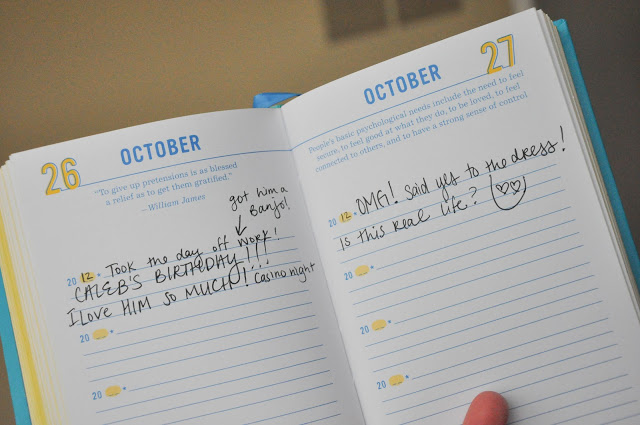 26 OCTOBER
"To give up pretensions is as blessed
a relief as to get them gratified."
—William James
got him a
Banjo!
20 12 • Took the day off work!
CALEB'S BIRTHDAY!!!
I LOVE HIM SO MUCH! Casino night
20
20
OCTOBER 27
People's basic psychological needs include the need to feel
secure, to feel good at what they do, to be loved, to feel
connected to others, and to have a strong sense of control
20 12 • OMG! Said yes to the dress!
Is this real life?
20
20
20